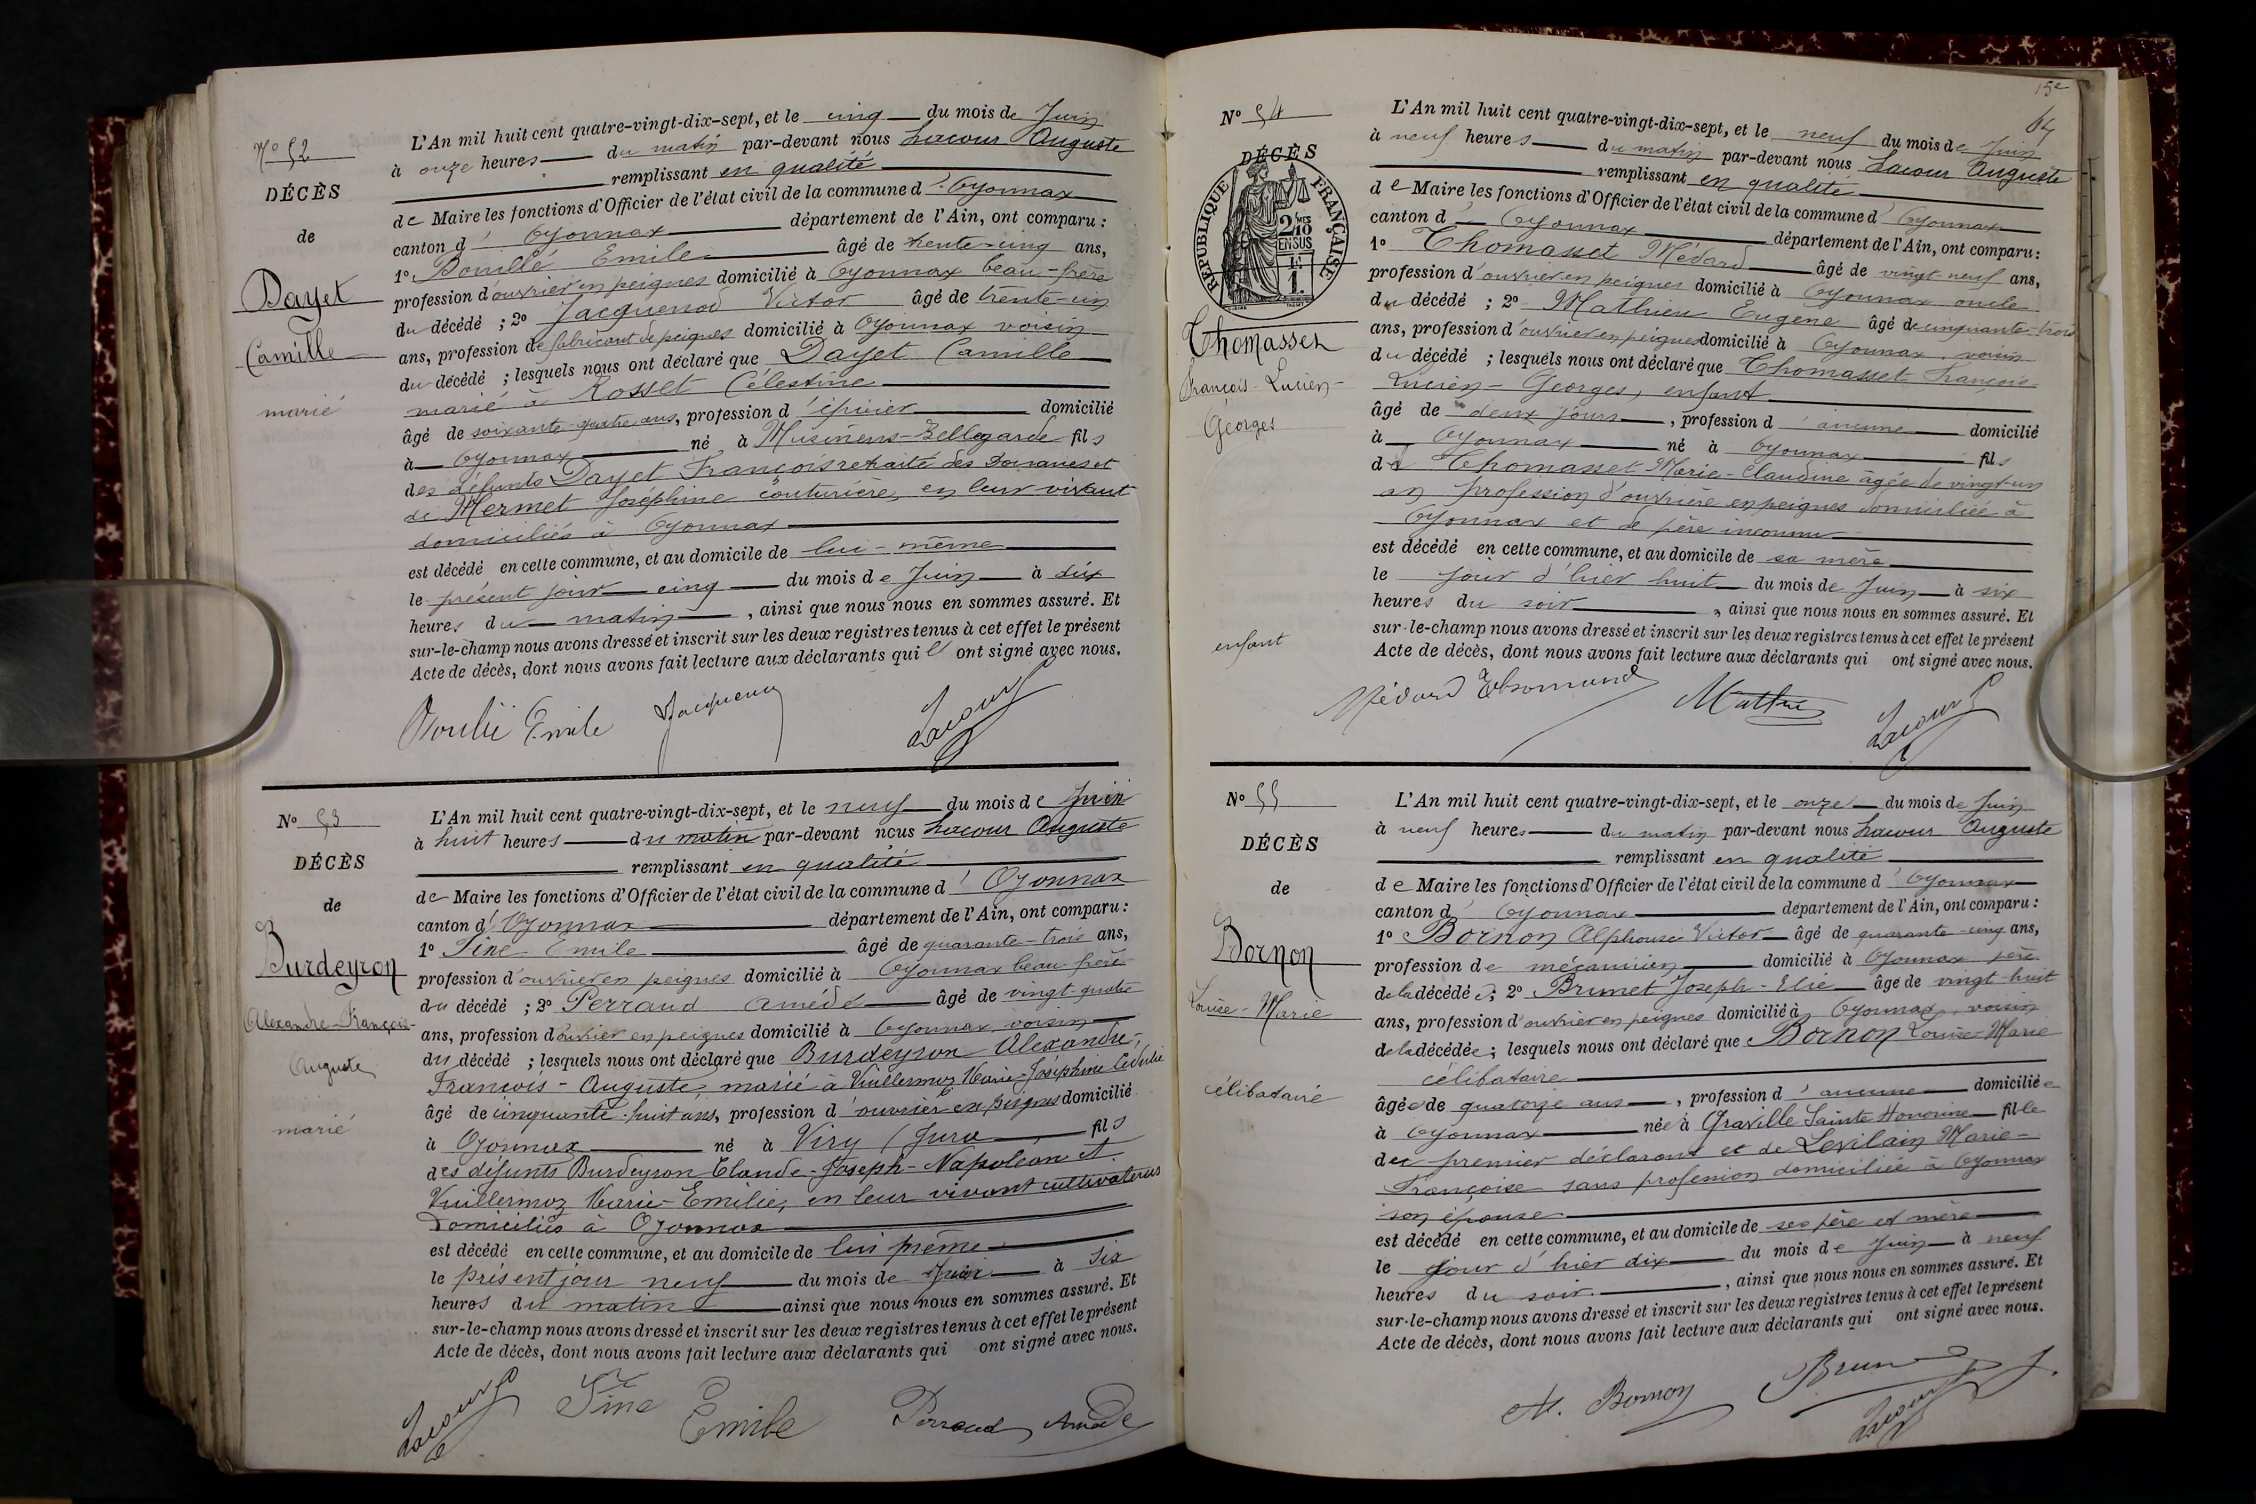 Nº 52
DÉCÈS
de
Dayet
Camille
marié
L'An mil huit cent quatre-vingt-dix-sept, et le cinq du mois de Juin
à onze heures du matin par-devant nous Lacour Auguste
remplissant en qualité
de Maire les fonctions d'Officier de l'état civil de la commune d'Oyonnax
canton d'Oyonnax département de l'Ain, ont comparu :
1º Bouillé Emile âgé de trente-cinq ans,
profession d'ouvrier en peignes domicilié à Oyonnax beau-frère
du décédé ; 2º Jacquenod Victor âgé de trente-un
ans, profession de fabricant de peignes domicilié à Oyonnax voisin
du décédé ; lesquels nous ont déclaré que Dayet Camille
marié à Rosset Célestine
âgé de soixante-quatre ans, profession d'épicier domicilié
à Oyonnax né à Musinens-Bellegarde fils
des défunts Dayet François retraité des Douanes et
de Mermet Joséphine couturière, en leur vivant
domiciliés à Oyonnax
est décédé en cette commune, et au domicile de lui-même
le présent jour cinq du mois de Juin à dix
heures du matin, ainsi que nous nous en sommes assuré. Et
sur-le-champ nous avons dressé et inscrit sur les deux registres tenus à cet effet le présent
Acte de décès, dont nous avons fait lecture aux déclarants qui ont signé avec nous.
Emile Lacour
Nº 53
DÉCÈS
de
Burdeyron
Alexandre-François-
Auguste
marié
L'An mil huit cent quatre-vingt-dix-sept, et le neuf du mois de Juin
à huit heures du matin par-devant nous Lacour Auguste
remplissant en qualité
de Maire les fonctions d'Officier de l'état civil de la commune d'Oyonnax
canton d'Oyonnax département de l'Ain, ont comparu :
1º Sine Emile âgé de quarante-trois ans,
profession d'ouvrier en peignes domicilié à Oyonnax beau frère
du décédé ; 2º Perraud Amédé âgé de vingt-quatre
ans, profession d'ouvrier en peignes domicilié à Oyonnax, voisin
du décédé ; lesquels nous ont déclaré que Burdeyron Alexandre-
François-Auguste, marié à Vuillermoz Marie-Joséphine
âgé de cinquante-huit ans, profession d'ouvrier en peignes domicilié
à Oyonnax né à Viry (Jura fils
des défunts Burdeyron Claude-Joseph-Napoléon et
Vuillermoz Marie-Emilie, en leur vivant cultivateurs
domiciliés à Oyonnax
est décédé en cette commune, et au domicile de lui même
le présent jour neuf du mois de Juin à six
heures du matin ainsi que nous nous en sommes assuré. Et
sur-le-champ nous avons dressé et inscrit sur les deux registres tenus à cet effet le présent
Acte de décès, dont nous avons fait lecture aux déclarants qui ont signé avec nous.
Lacour Sine Emile Perraud Amédé
15e
64
Nº 54
DÉCÈS
RÉPUBLIQUE FRANÇAISE
2/10 EN SUS
1 F.
Thomasset
François-Lucien-
Georges
enfant
L'An mil huit cent quatre-vingt-dix-sept, et le neuf du mois de Juin
à neuf heures du matin par-devant nous Lacour Auguste
remplissant en qualité
de Maire les fonctions d'Officier de l'état civil de la commune d'Oyonnax
canton d'Oyonnax département de l'Ain, ont comparu :
1º Thomasset Médard âgé de vingt neuf ans,
profession d'ouvrier en peignes domicilié à Oyonnax oncle
du décédé ; 2º Mathieu Eugène âgé de cinquante-trois
ans, profession d'ouvrier en peignes domicilié à Oyonnax, voisin
du décédé ; lesquels nous ont déclaré que Thomasset François
Lucien-Georges, enfant
âgé de deux jours, profession d'aucune domicilié
à Oyonnax né à Oyonnax fils
de Thomasset Marie-Claudine âgée de vingt-un
an profession d'ouvrière en peignes domiciliée à
Oyonnax et de père inconnu
est décédé en cette commune, et au domicile de sa mère
le jour d'hier huit du mois de Juin à six
heures du soir, ainsi que nous nous en sommes assuré. Et
sur-le-champ nous avons dressé et inscrit sur les deux registres tenus à cet effet le présent
Acte de décès, dont nous avons fait lecture aux déclarants qui ont signé avec nous.
Médard Lacour
Nº 55
DÉCÈS
de
Bornon
Louise-Marie
célibataire
L'An mil huit cent quatre-vingt-dix-sept, et le onze du mois de Juin
à neuf heures du matin par-devant nous Lacour Auguste
remplissant en qualité
de Maire les fonctions d'Officier de l'état civil de la commune d'Oyonnax
canton d'Oyonnax département de l'Ain, ont comparu :
1º Bornon Alphonse Victor âgé de quarante-cinq ans,
profession de mécanicien domicilié à Oyonnax père
de la décédée ; 2º Brunet Joseph-Elie âgé de vingt-huit
ans, profession d'ouvrier en peignes domicilié à Oyonnax, voisin
de la décédée ; lesquels nous ont déclaré que Bornon Louise-Marie
célibataire
âgée de quatorze ans, profession d'aucune domiciliée
à Oyonnax née à Graville Sainte Honorine fille
du premier déclarant et de Levilain Marie-
Françoise sans profession domiciliée à Oyonnax
son épouse
est décédé en cette commune, et au domicile de ses père et mère
le jour d'hier dix du mois de Juin à neuf
heures du soir, ainsi que nous nous en sommes assuré. Et
sur-le-champ nous avons dressé et inscrit sur les deux registres tenus à cet effet le présent
Acte de décès, dont nous avons fait lecture aux déclarants qui ont signé avec nous.
Bornon Lacour